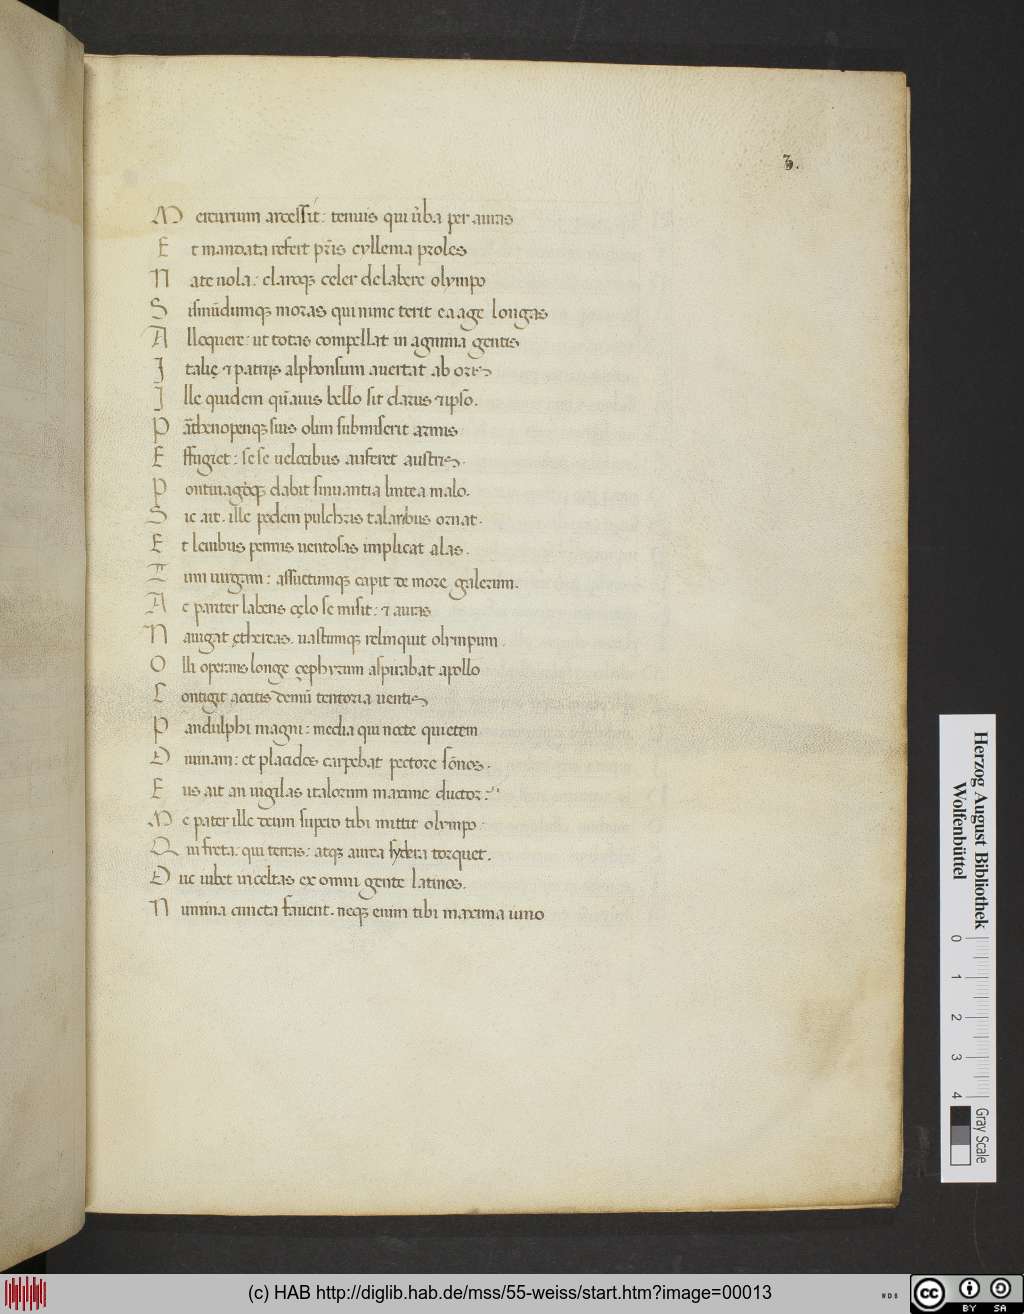 3.
Mercurium arcessit: tenuis qui ūba per auras
Et mandata refert pr̄is cyllenia proles
Nate uola: claroq; celer delabere olympo
Sismūdumq; moras qui nunc terit ea age longas
Alloquere: ut totas compellat in agmina gentis
Italię ⁊ patrijs alphonsum auertat ab oris
Ille quidem qūauis bello sit clarus ⁊ ipso.
P suis olim submiserit armis
Effugiet: sese uelocibus auferet austris.
dabit sinuantia lintea malo.
Sic ait. ille pedem pulchris talaribus ornat.
Et leuibus pennis uentosas implicat alas.
Tum uirgam: assuetumq; capit de more galerum.
Ac pariter labens cęlo se misit: ⁊ auras
Nauigat ęthereas. uastumq; relinquit olympum.
Olli operanis longe zephyrum aspirabat apollo
Contigit accitis demū tentoria uentis
Pandulphi magni: media qui nocte quietem
Diuinam: et placidos carpebat pectore sōnos.
Eus ait an uigilas italorum maxime ductor:
Me pater ille deum supero tibi mittit olympo
Qui freta: qui terras: atq; aurea sydera torquet.
Duc iubet in celtas ex omni gente latinos.
Numina cuncta fauent. neq; enim tibi maxima iuno
Herzog August Bibliothek
Wolfenbüttel
0 1 2 3 4
Gray Scale
(c) HAB http://diglib.hab.de/mss/55-weiss/start.htm?image=00013
cc BY SA